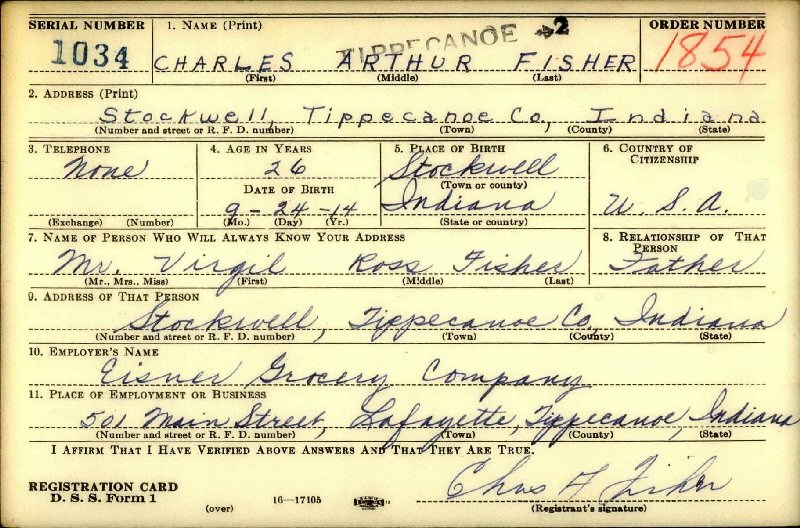 SERIAL NUMBER 1. NAME (Print) ORDER NUMBER
TIPPECANOE 2
1034 CHARLES ARTHUR FISHER 1854
(First) (Middle) (Last)
2. ADDRESS (Print)
Stockwell, Tippecanoe Co, Indiana
(Number and street or R. F. D. number) (Town) (County) (State)
3. TELEPHONE 4. AGE IN YEARS 5. PLACE OF BIRTH 6. COUNTRY OF CITIZENSHIP
None 26 Stockwell
(Town or county)
DATE OF BIRTH Indiana U. S. A.
9-24-14
(Exchange) (Number) (Mo.) (Day) (Yr.) (State or country)
7. NAME OF PERSON WHO WILL ALWAYS KNOW YOUR ADDRESS 8. RELATIONSHIP OF THAT PERSON
Mr. Virgil Ross Fisher Father
(Mr., Mrs., Miss) (First) (Middle) (Last)
9. ADDRESS OF THAT PERSON
Stockwell, Tippecanoe Co, Indiana
(Number and street or R. F. D. number) (Town) (County) (State)
10. EMPLOYER'S NAME
Eisner Grocery Company
11. PLACE OF EMPLOYMENT OR BUSINESS
501 Main Street, Lafayette, Tippecanoe, Indiana
(Number and street or R. F. D. number) (Town) (County) (State)
I AFFIRM THAT I HAVE VERIFIED ABOVE ANSWERS AND THAT THEY ARE TRUE.
REGISTRATION CARD
D. S. S. Form 1 16—17105 Chas A Fisher
(over) (Registrant's signature)